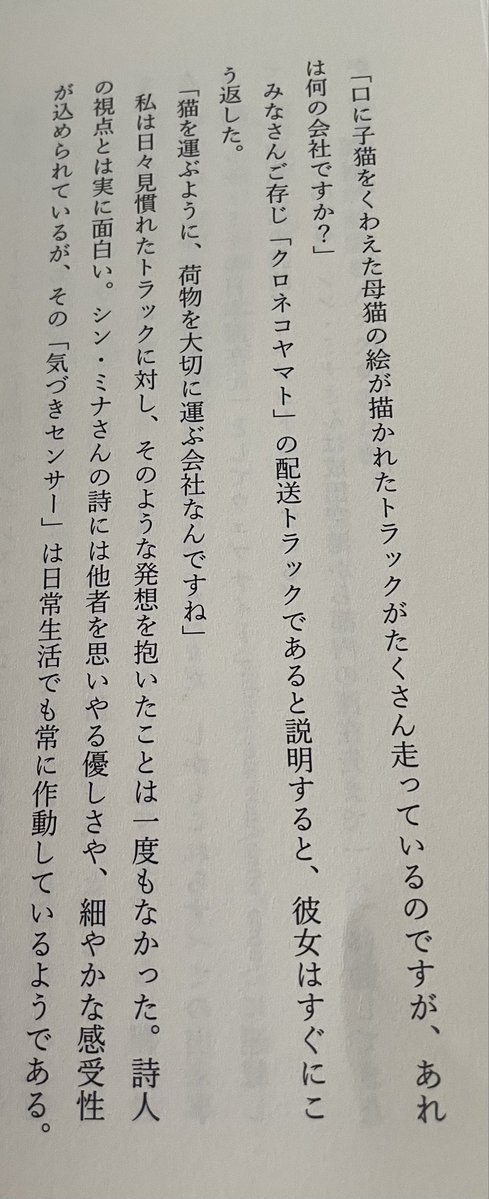 「口に子猫をくわえた母猫の絵が描かれたトラックがたくさん走っているのですが、あれ
は何の会社ですか？」
みなさんご存じ「クロネコヤマト」の配送トラックであると説明すると、彼女はすぐにこ
う返した。
「猫を運ぶように、荷物を大切に運ぶ会社なんですね」
私は日々見慣れたトラックに対し、そのような発想を抱いたことは一度もなかった。詩人
の視点とは実に面白い。シン・ミナさんの詩には他者を思いやる優しさや、細やかな感受性
が込められているが、その「気づきセンサー」は日常生活でも常に作動しているようである。